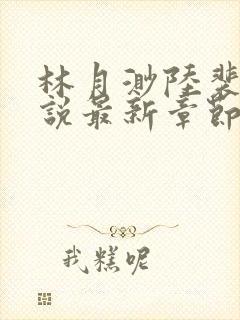 林月渺陸裴
說最新章節
我糕呢